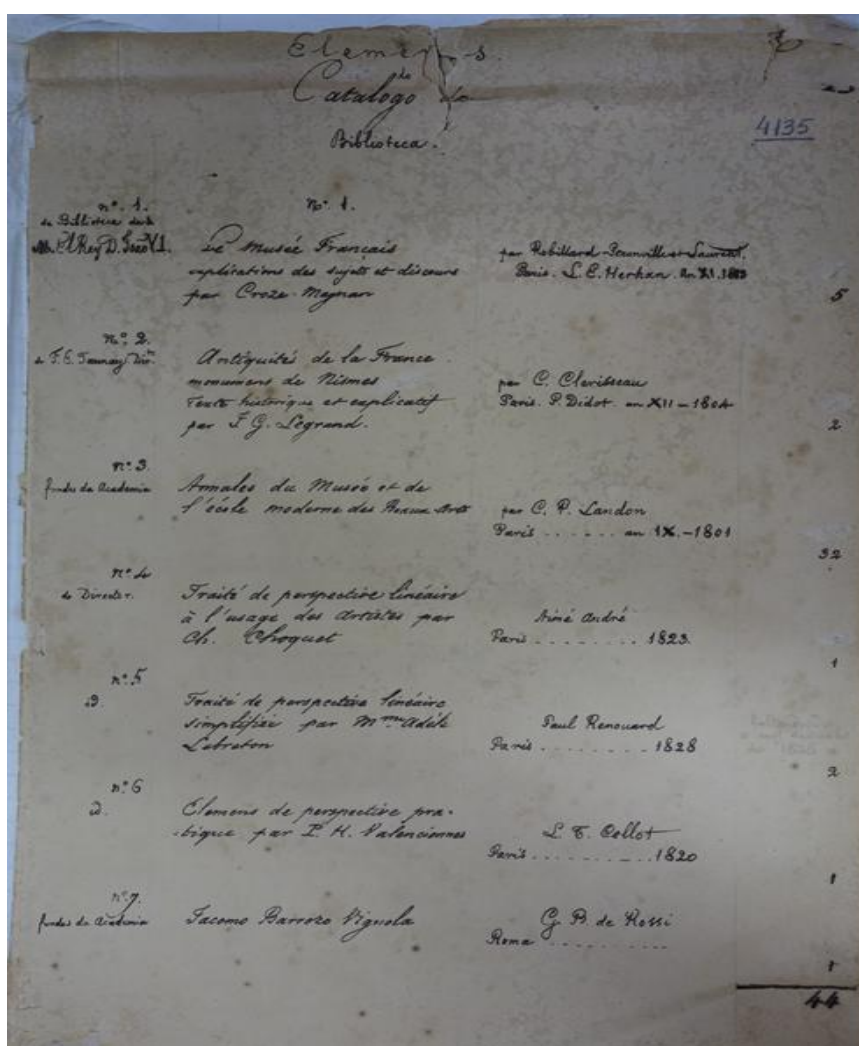 Elementos
do
Catalogo da
Bibliotheca.
4135
nº. 1.
Nº. 1.
da Bibliotheca de S.
M. El Rey D. João VI.
Le Musée Français
explications des sujets et discours
par Croze-Magnan
par Robillard-Peronville et Laurent.
Paris. L. E. Herhan. An XI. 1803
5
nº. 2.
F. E. Taunay Dir.
Antiquités de la France
monumens de Nismes
Texte historique et explicatif
par J. G. Legrand.
par C. Clerisseau
Paris. P. Didot. an XII - 1804
2
nº 3.
fundos da Academia
Annales du Musée et de
l'école moderne des Beaux Arts
par C. P. Landon
Paris . . . . . . an IX. - 1801
32
nº 4
do Director.
Traité de perspective linéaire
à l'usage des Artistes par
Ch. Choquet
Aimé André
Paris . . . . . . . . 1823.
1
nº 5
Traité de perspective linéaire
simplifiée par Mme Adèle
Lebreton
Paul Renouard
Paris . . . . . . . . 1828
2
nº 6
Elemens de perspective pra-
-tique par P. H. Valenciennes
L. T. Cellot
Paris . . . . . . . . 1820
1
nº 7.
fundos da Academia
Jacomo Barrozo Vignola
G. B. de Rossi
Roma . . . . . . . . . .
1
44